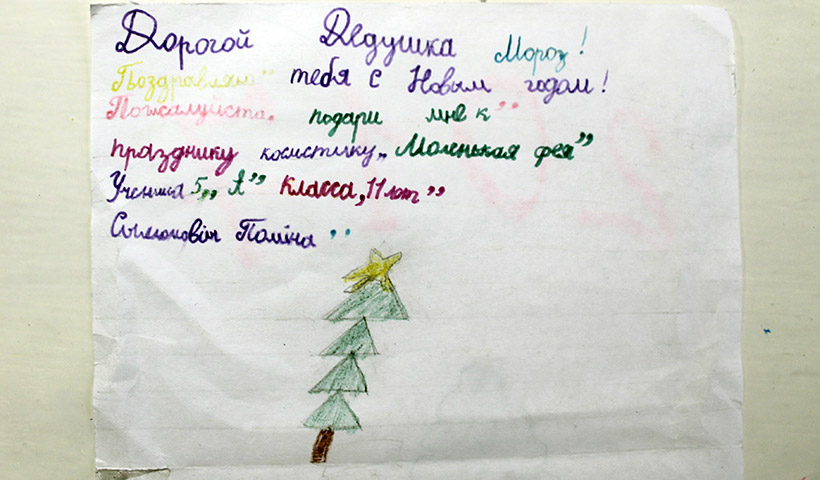 Дорогой Дедушка Мороз!
Поздравляю тебя с Новым годом!
Пожалуйста. подари мне к
празднику косметичку „Маленькая фея”
Ученица 5 „А” класса, 11 лет
Полина